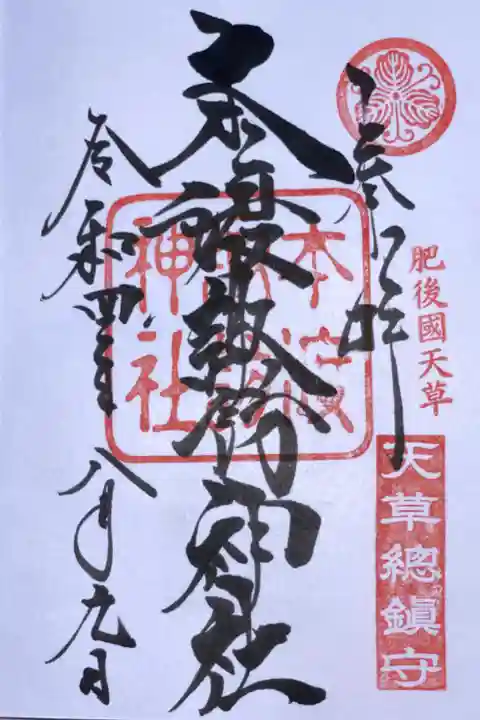 参拝
肥後國天草
天草總鎮守
本渡諏訪神社
本渡
諏訪
神社
令和四年八月九日